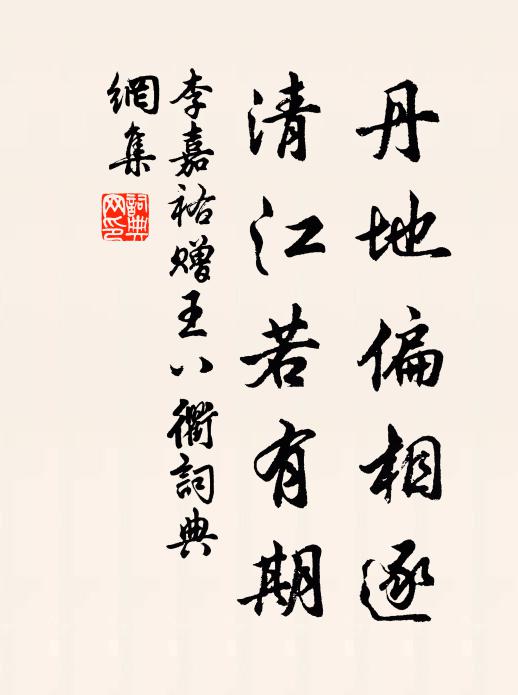 丹地偏相逐
清江若有期
李嘉祐贈王八衢詞典
網集
詞典
网印